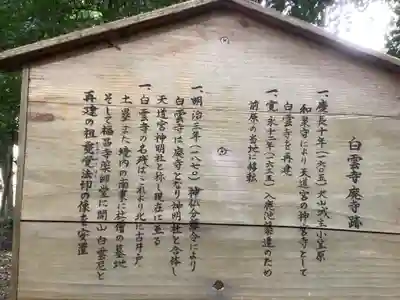 白雲寺廃寺跡
一、慶長十年(一六〇五)犬山城主小笠原
和泉守により天道宮の神宮寺として
白雲寺を再建
一、寛永十二年(一六三五)入鹿池築造のため
前原の当地に移転
一、明治三年(一八七〇)神仏分離令により
白雲寺は廃寺となり神明社と合体し
天道宮神明社と称し現在に至る
一、白雲寺の名残はこれより北に古井戸
土塁また境内の南東に社僧の墓地
そして福昌寺薬師堂に開山白雲龙と
再建の祖重覚法印の像を安置